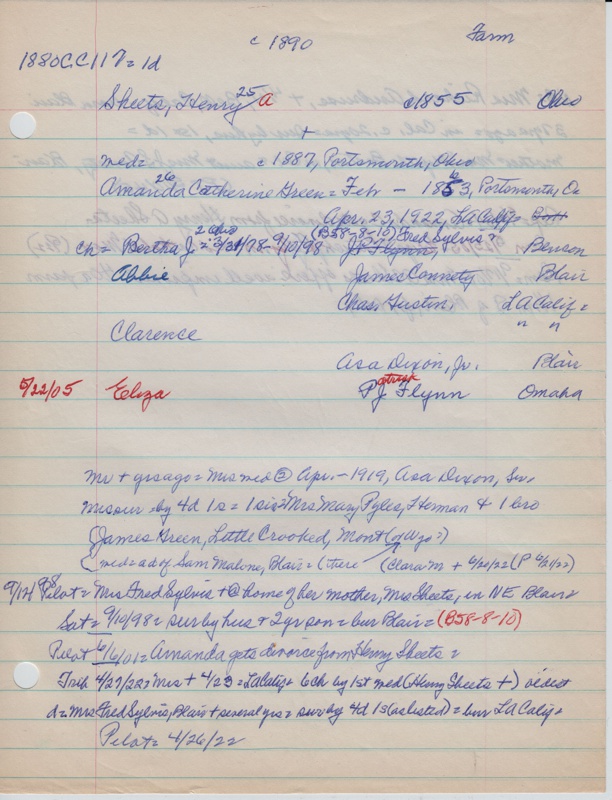 c 1890 Farm
1880C.C117 = 1d
Sheets, Henry 25 A c1855 Ohio
+
med= c 1887, Portsmouth, Ohio
Amanda 26 Catherine Green = Feb — 1856, Portsmouth, O
Apr. 23, 1922, LA Calif=
(B58-8-10) Fred Sylvis?
ch = Bertha J. 2 Ohio = 3/31/78-9/10/98 J.P. Flynn, Benson
Abbie James Connety Blair
Chas. Gustin, LA Calif=
Clarence " "
Asa Dixon, Jr. Blair
5/22/05 Eliza P.J. Flynn Omaha
atrick
mv + yrs ago = Mrs med ② Apr. - 1919, Asa Dixon, Sr.
Mrs sur by 4d 1s = 1 sis = Mrs Mary Pyles, Herman & 1 bro
James Green, Little Crooked, Mont (or Wyo=)
(med = ad of Sam Malone, Blair = (there (Clara M + 6/20/22 (P 6/21/22)
9/14/98 Pilot = Mrs Fred Sylvis + @ home of her mother, Mrs Sheets, in NE Blair=
Sat = 9/10/98 = sur by hus + 2 yr son = bur Blair = (B58-8-10)
Pilot 6/6/01 = Amanda gets divorce from Henry Sheets =
Trib 4/27/22 = Mrs + 4/23 = LA Calif + 6ch by 1st med (Henry Sheets +) oldest
d = Mrs Fred Sylvis, Blair + several yrs = sur by 4d 1s (as listed) = bur LA Calif=
Pilot = 4/26/22